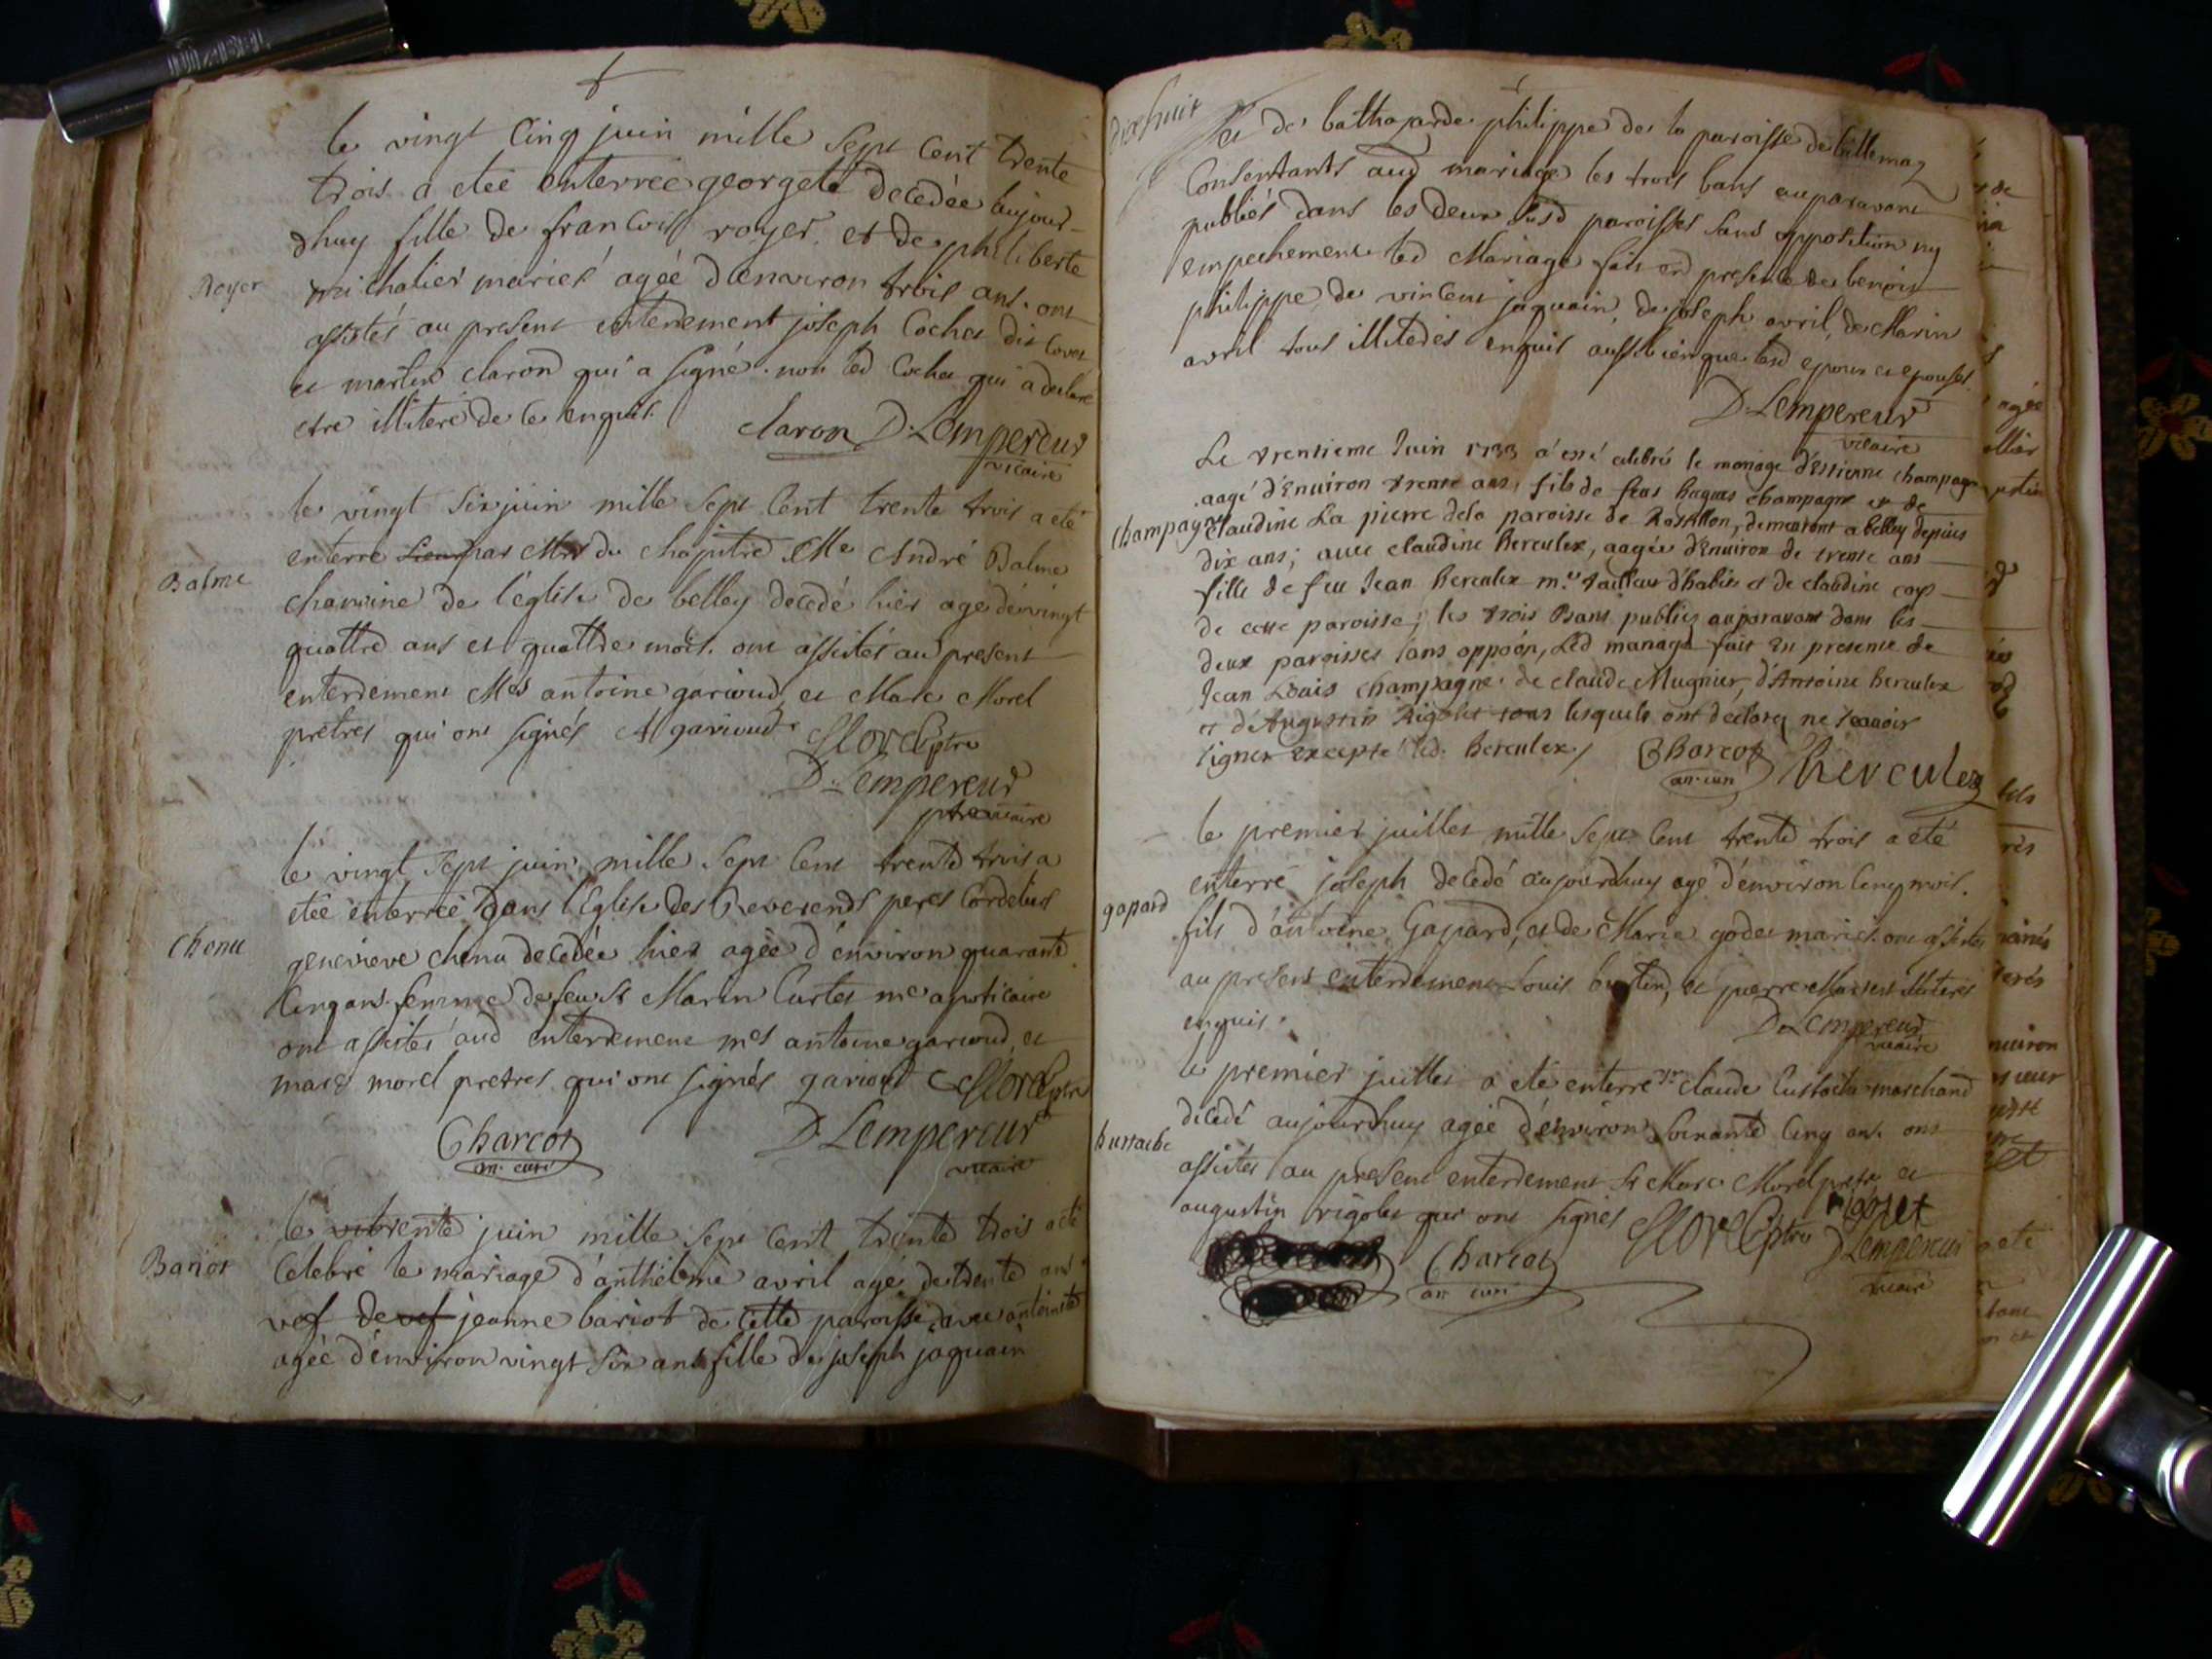 le vingt cinq juin mille sept cent trente
trois a etée enterrée georgete decedée aujour-
dhuy fille de francois royer et de philiberte
michalier mariés agée d'environ trois ans. ont
assistés au present enterement joseph Cochet dit
et martin claron qui a signé. non led Cochet qui a declaré
etre illiteré de ce enquis.
claron D. Lempereur
vicaire
Royer
le vingt six juin mille sept cent trente trois a eté
enterré par du chapitre Me André Balme
chanoine de l'église de belley decedé hier agé de vingt
quattre ans et quattre mois. ont assistés au present
enterement Mes antoine garioud et Marc Morel
pretres qui ont signés A garioud Morel ptre
D. Lempereur
ptre vicaire
Balme
le vingt sept juin mille sept cent trente trois a
etée enterrée dans l'Eglise des Reverends peres Cordeliers
genevieve chenu decedée hier agée d'environ quarante
cinq ans femme de feu Sr Marin Curtet me apoticaire
ont assistés aud enterrement mes antoine garioud, et
marc morel pretres qui ont signés garioud Morel ptre
Charcot
an. curé
D. Lempereur
vicaire
Chenu
le trente juin mille sept cent trente trois a eté
Celebré le mariage d'anthelme avril agé de trente ans
vef de vef jeanne bariot de cette paroisse, avec antoinette
agée d'environ vingt six ans fille de joseph jaquain
Bariot
dix huit
et de balthazarde philippe de la paroisse de
Consentants aud mariage les trois bans auparavant
publiés dans les deux susd paroisses sans opposition ny
empechement led Mariage fait en presence de benoist
philippe, de vincent jaquain, de joseph avril, de Marin
avril tous illiterés enquis aussi bien que lesd epoux et epouse.
D. Lempereur
vicaire
Le trentieme Juin 1733 a esté celebré le mariage d'Estienne champagne
aagé d'Enuiron trente ans, fils de feus hugues champagne et de
claudine La pierre dela paroisse de Rossillon, demeurant a belley depuis
dix ans; auec claudine herculex, aagée d'Enuiron de trente ans
fille de feu Jean herculex me tailleur d'habits et de claudine
de cette paroisse; les trois Bans publiez auparauant dans les
deux paroisses sans oppoon, Led mariage fait En presence de
Jean Louis champagne de claude Mugnier, d'Antoine herculex
et d'Augustin Rigolet tous lesquels ont declaré ne scauoir
signer Excepté led. herculex,
Charcot
an. curé
herculex
Champagne
le premier juillet mille sept cent trente trois a été
enterré joseph decedé aujourdhuy agé d'environ cinq mois.
fils d'antoine Gapard, et de Marie godet mariés. ont assistés
au present enterrement Louis et pierre illiterés
enquis.
D. Lempereur
vicaire
gapard
le premier juillet a eté enterré sr Claude Eustache marchand
decedé aujourdhuy agée d'environ soixante cinq ans. ont
assistés au present enterrement Sr Marc Morel pretre et
augustin rigolet qui ont signés Morel ptre rigolet
Charcot
an curé
D. Lempereur
vicaire
hustache